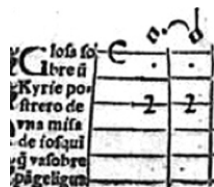 Glosa so-
bre ũ
Kyrie po-
strero de
vna misa
de josqui
q̃ va sobre
pãgeligua
2 2